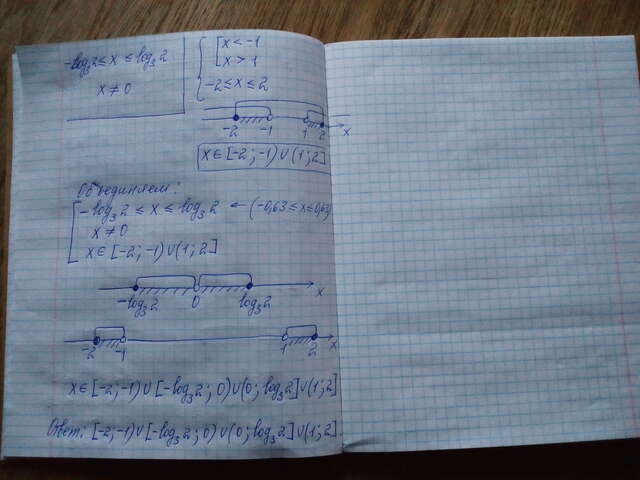 -log₃2 ≤ x ≤ log₃2
x ≠ 0
x < -1
x > 1
-2 ≤ x ≤ 2
-2 -1 1 2 x
x ∈ [-2; -1) ∪ (1; 2]
Объединяем:
-log₃2 ≤ x ≤ log₃2 ← (-0,63 ≤ x ≤ 0,63)
x ≠ 0
x ∈ [-2; -1) ∪ (1; 2]
-log₃2 0 log₃2 x
-2 -1 1 2 x
x ∈ [-2; -1) ∪ [-log₃2; 0) ∪ (0; log₃2] ∪ (1; 2]
Ответ: [-2; -1) ∪ [-log₃2; 0) ∪ (0; log₃2] ∪ (1; 2]